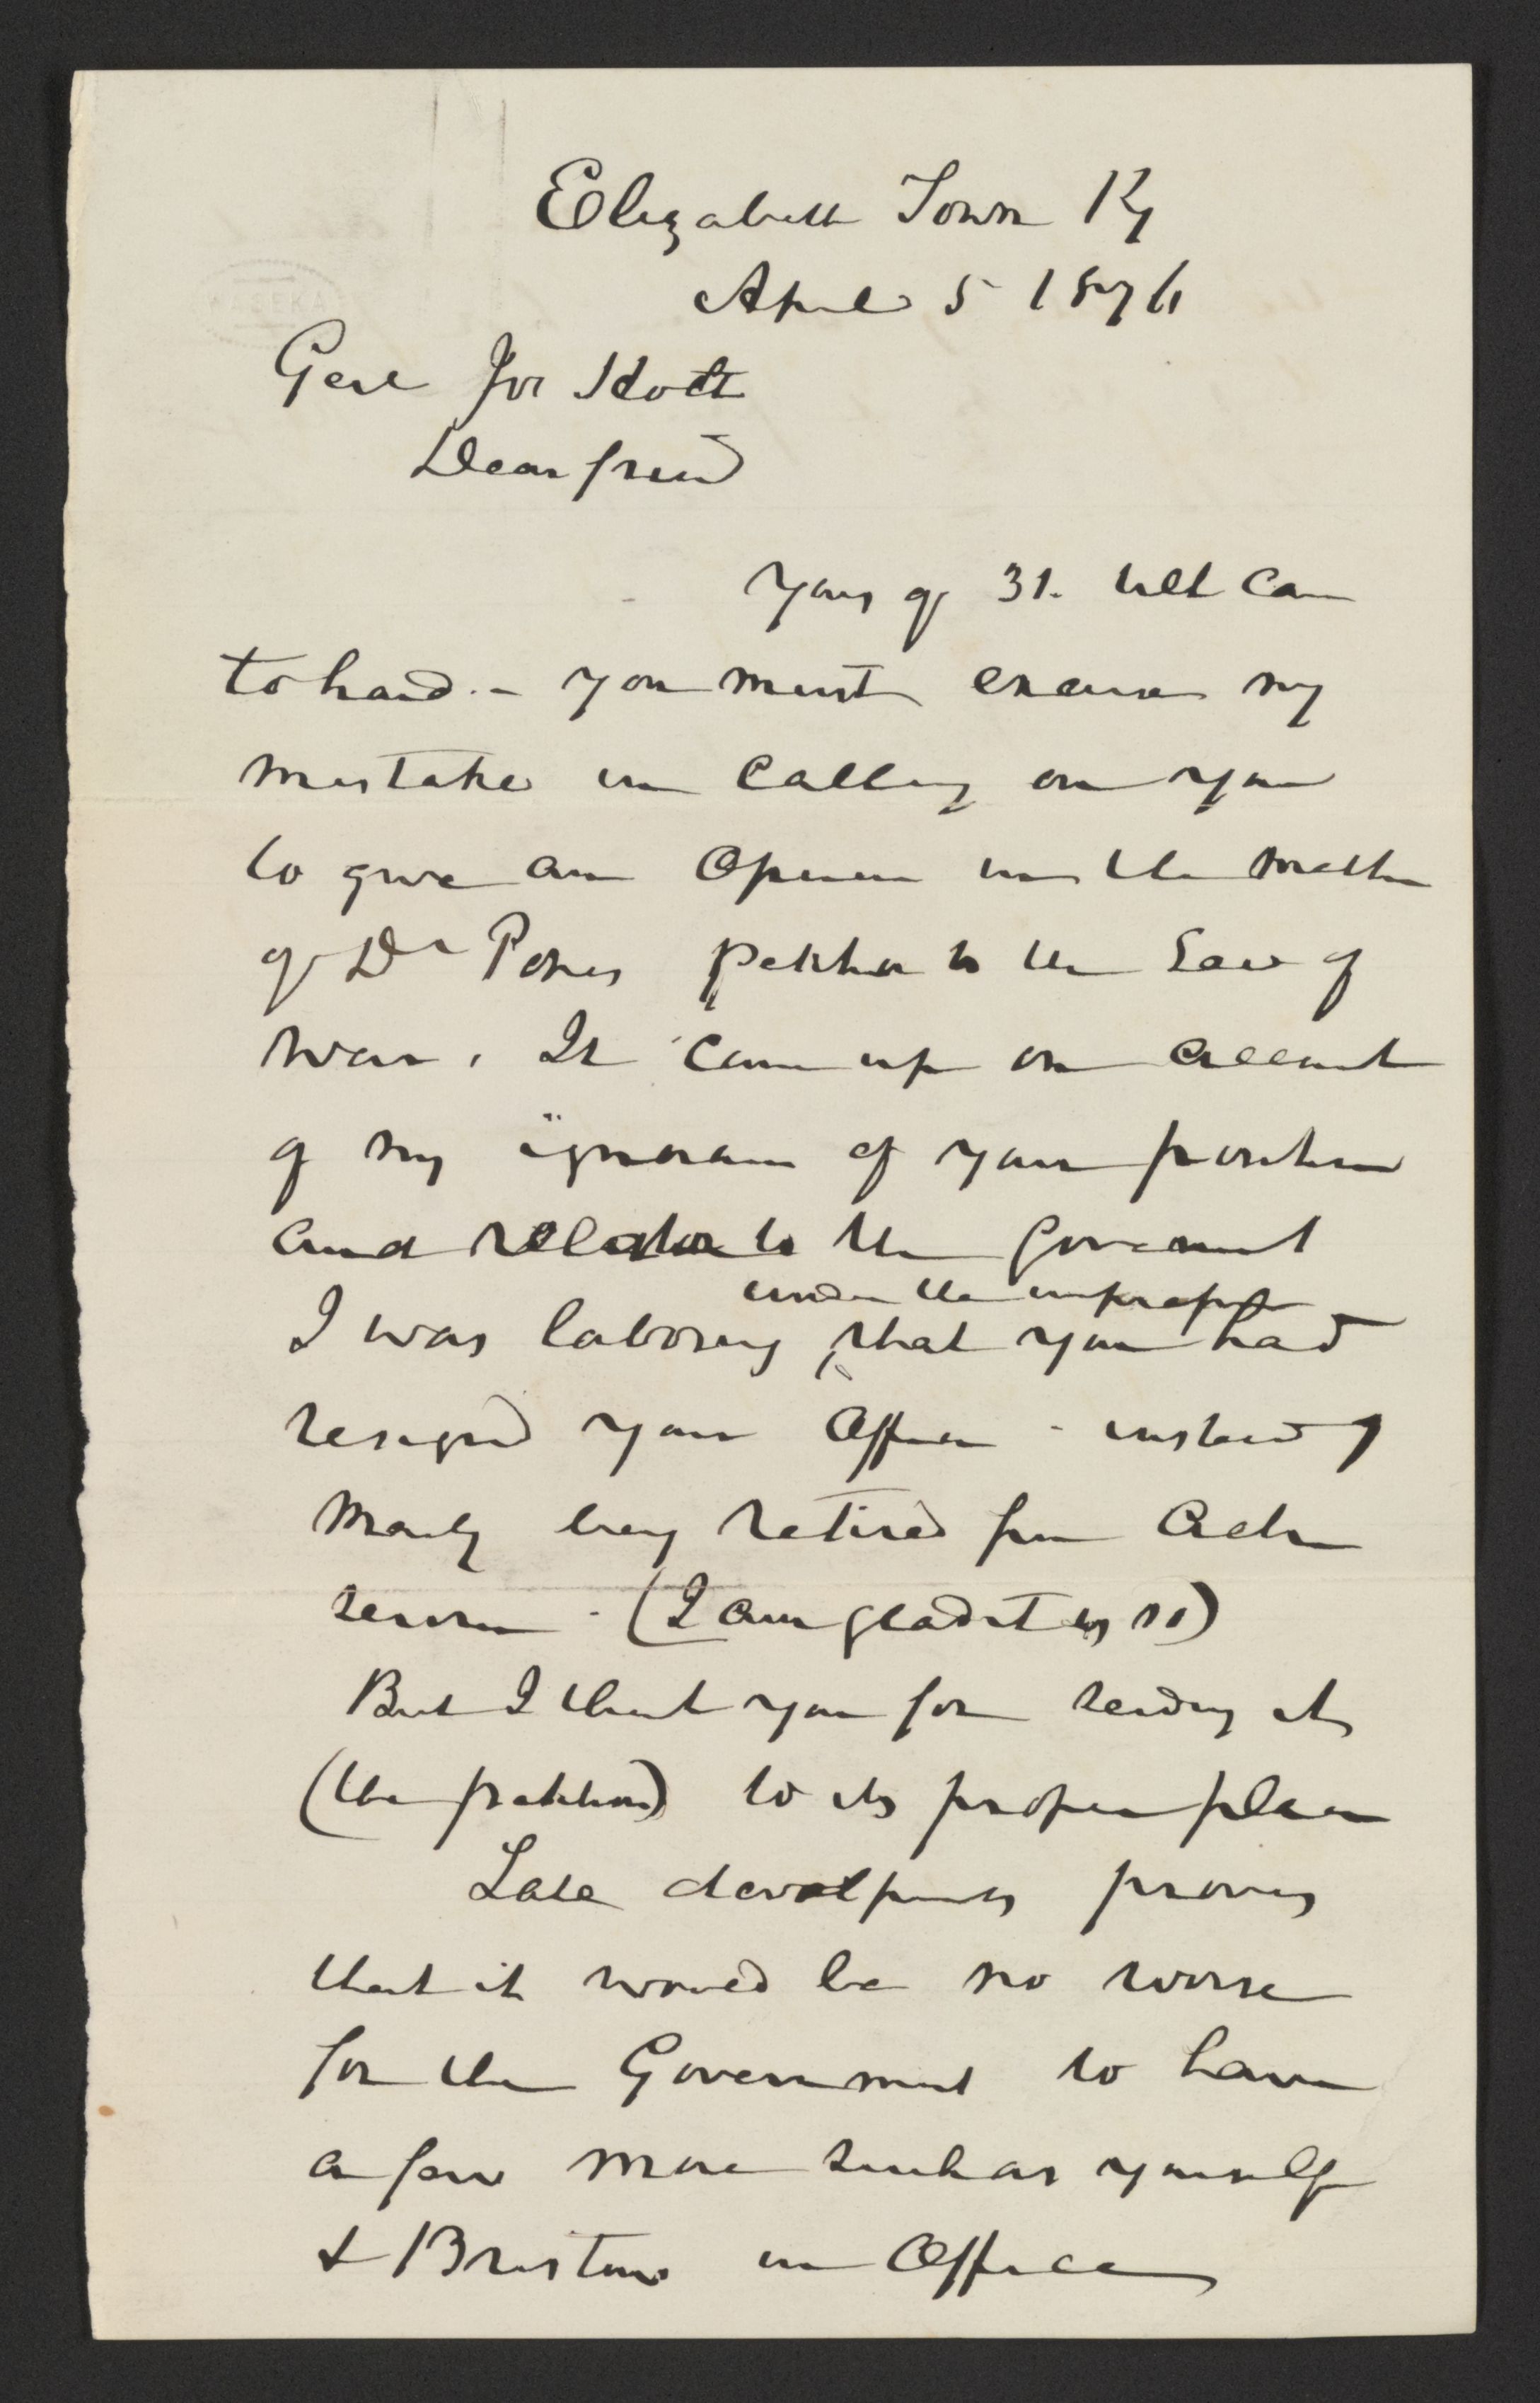 Elizabeth Town Ky
April 5 1876
Genl Jos Holt
Dear friend
Yours of 31. Ult came
to hand. - you must excuse my
mistake in calling on you
to give an Opinion in the matter
of Dr petition to the Sec of
War. It came up on account
of my ignorance of your position
and relation to the Government
under the impression
I was laboring that you had
resigned your Office - instead of
being retired from Active
service. (I am glad it is so)
But I thank you for sending it
(the petition) to its proper place
Late developments proves
that it would be no worse
for the Government to have
a few more such as yourself
& Bristow in Office
WASEKA